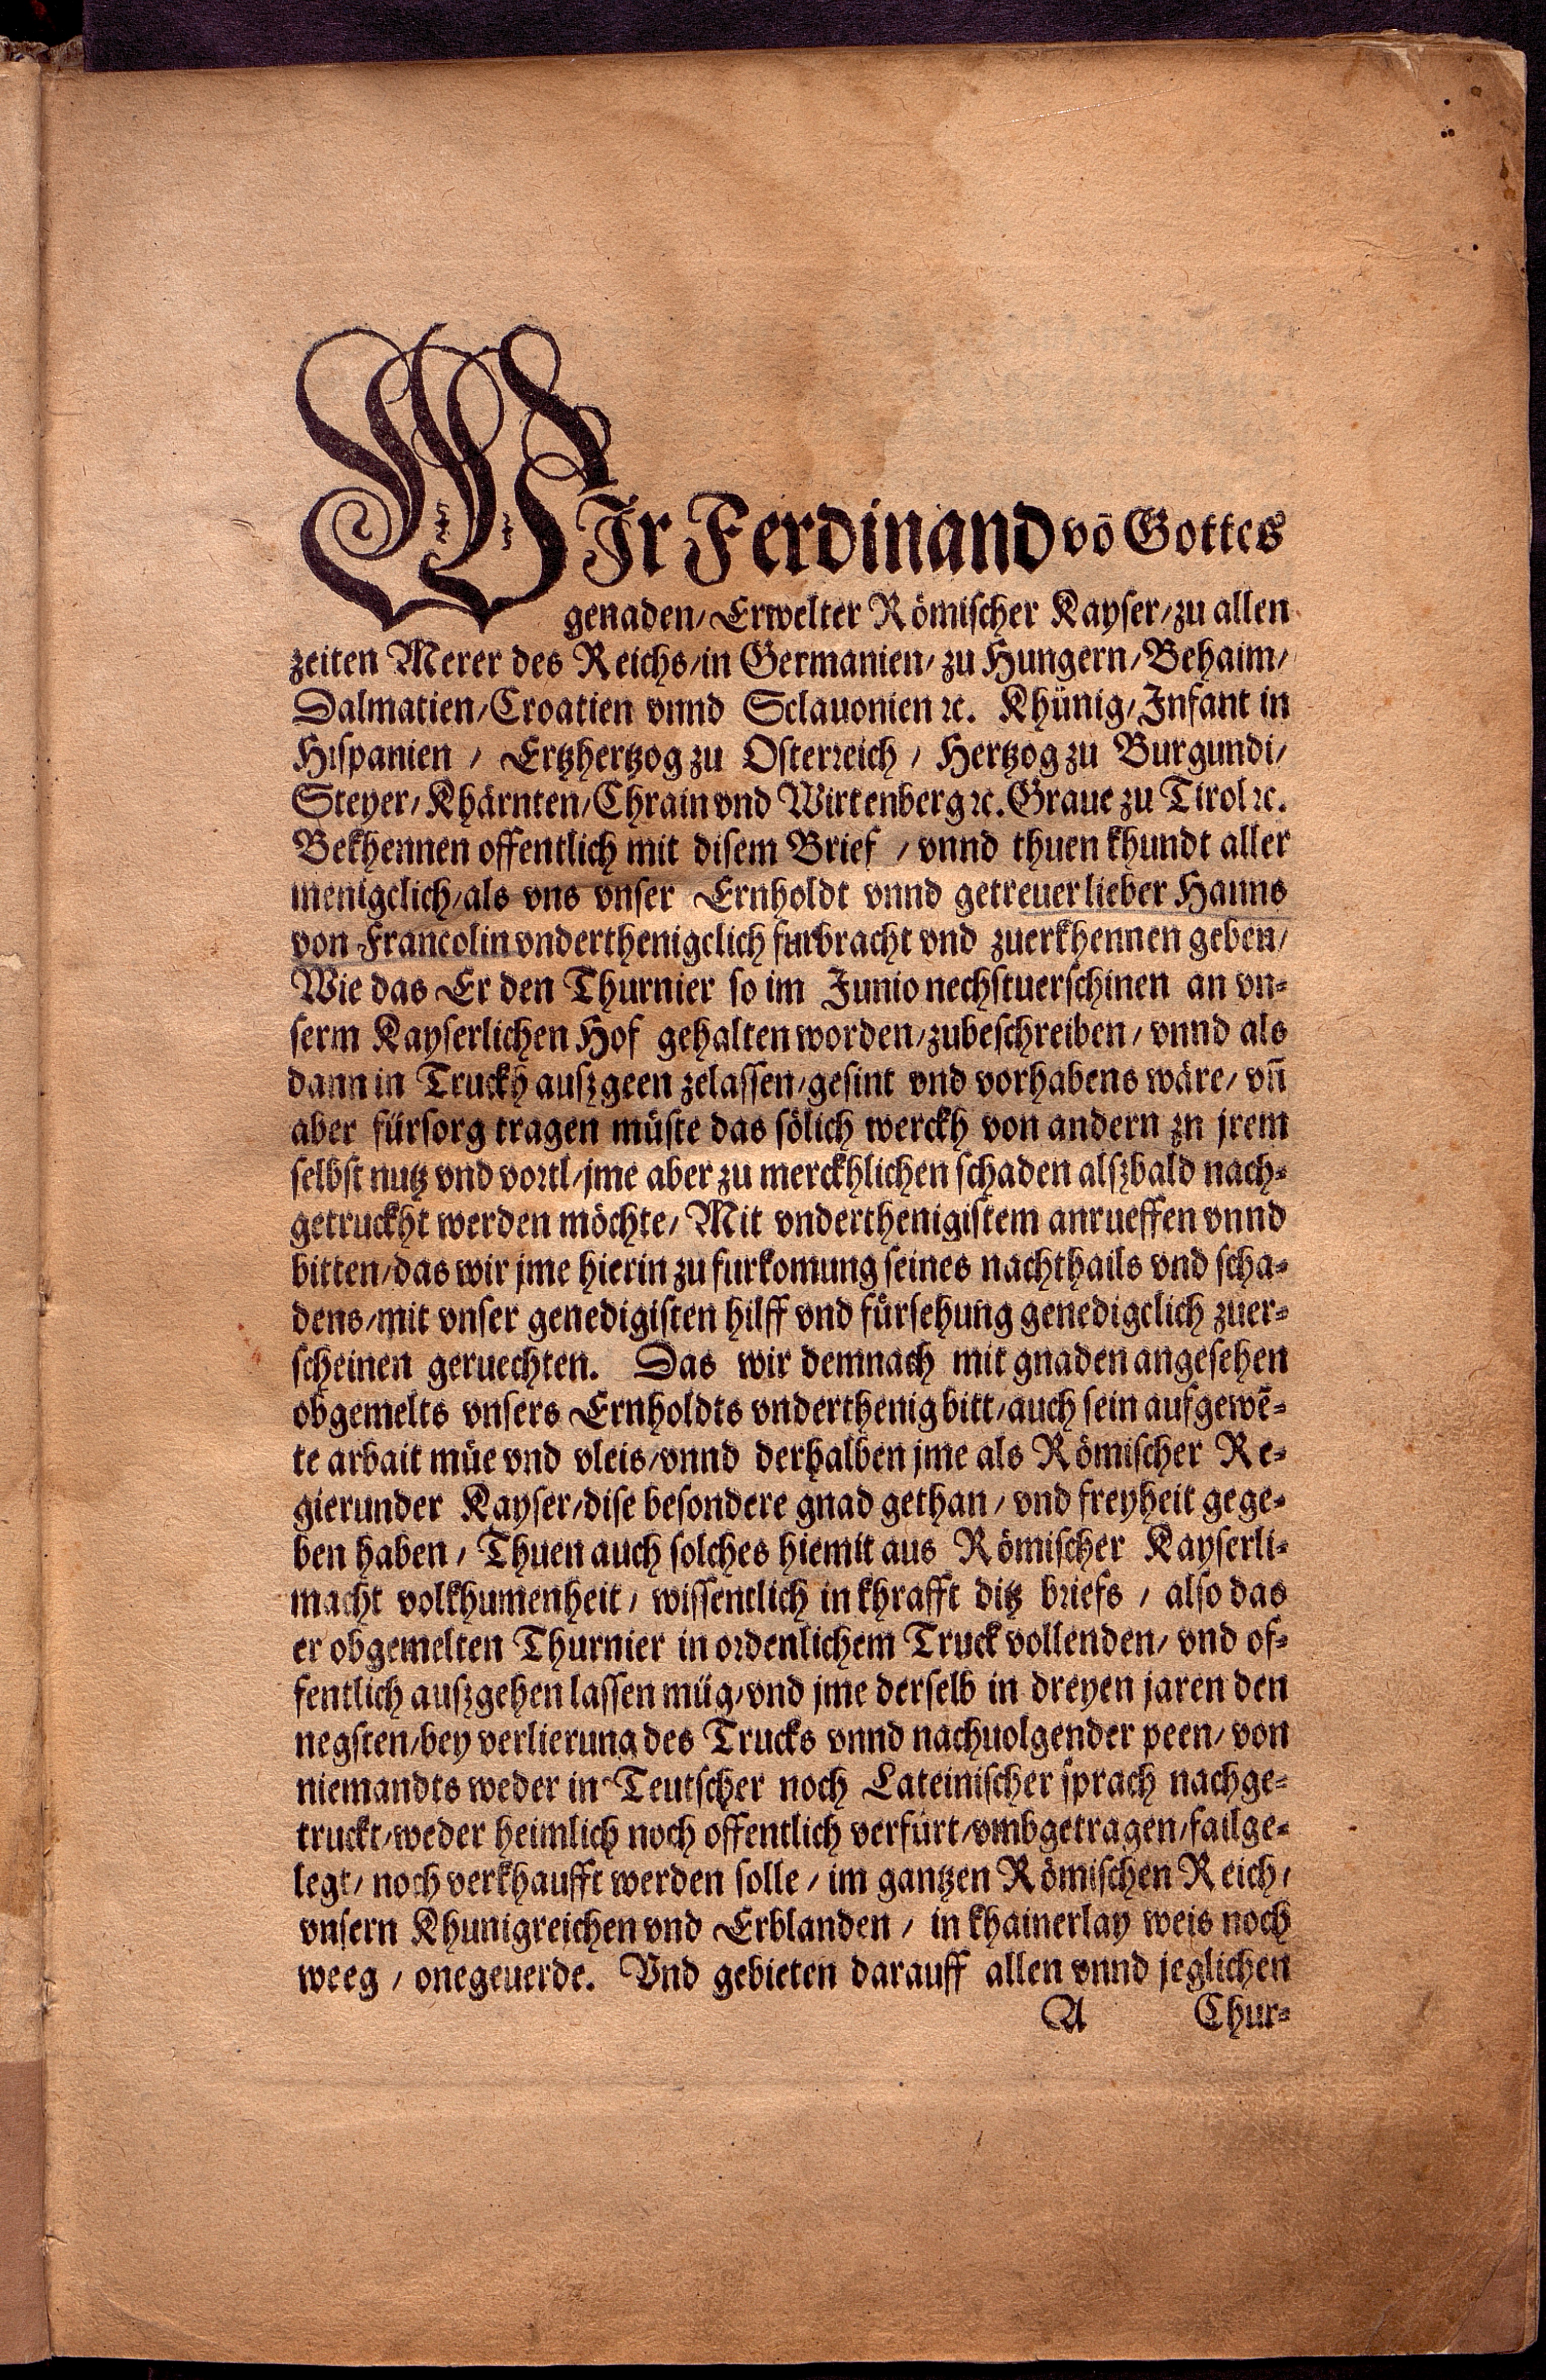 WIr Ferdinand võ Gottes
genaden/ Erwelter Römischer Kayser/ zu allen
zeiten Merer des Reichs/ in Germanien/ zu Hungern/ Behaim/
Dalmatien/ Croatien vnnd Sclauonien ꝛc. Khünig/ Infant in
Hispanien / Ertzhertzog zu Osterreich / Hertzog zu Burgundi/
Steyer/ Khärnten/ Chrain vnd Wirtenberg ꝛc. Graue zu Tirol ꝛc.
Bekhennen offentlich mit disem Brief / vnnd thuen khundt aller
menigclich/ als vns vnser Ernholdt vnnd getreuer lieber Hanns
von Francolin vnderthenigclich furbracht vnd zuerkhennen geben/
Wie das Er den Thurnier so im Junio nechstuerschinen an vn⸗
serm Kayserlichen Hof gehalten worden/ zubeschreiben/ vnnd als
dann in Truckh auszgeen zelassen/ gesint vnd vorhabens wäre/ vñ
aber fürsorg tragen müste das sölich werckh von andern zn jrem
selbst nutz vnd vortl/ jme aber zu merckhlichen schaden alszbald nach⸗
getruckht werden möchte/ Mit vnderthenigistem anrueffen vnnd
bitten/ das wir jme hierin zu furkomung seines nachthails vnd scha⸗
dens/ mit vnser genedigisten hilff vnd fürsehung genedigclich zuer⸗
scheinen geruechten. Das wir demnach mit gnaden angesehen
obgemelts vnsers Ernholdts vnderthenig bitt/ auch sein aufgewẽ⸗
te arbait müe vnd vleis/ vnnd derhalben jme als Römischer Re⸗
gierunder Kayser/ dise besondere gnad gethan / vnd freyheit gege⸗
ben haben / Thuen auch solches hiemit aus Römischer Kayserli⸗
macht volkhumenheit / wissentlich in khrafft ditz briefs / also das
er obgemelten Thurnier in ordenlichem Truck vollenden/ vnd of⸗
fentlich auszgehen lassen müg/ vnd jme derselb in dreyen jaren den
negsten/ bey verlierung des Trucks vnnd nachuolgender peen/ von
niemandts weder in Teutscher noch Lateinischer sprach nachge⸗
truckt/ weder heimlich noch offentlich verfürt/ vmbgetragen/ failge⸗
legt/ noch verkhaufft werden solle / im gantzen Römischen Reich/
vnsern Khunigreichen vnd Erblanden / in khainerlay weis noch
weeg / onegeuerde. Vnd gebieten darauff allen vnnd jeglichen
A Chur⸗